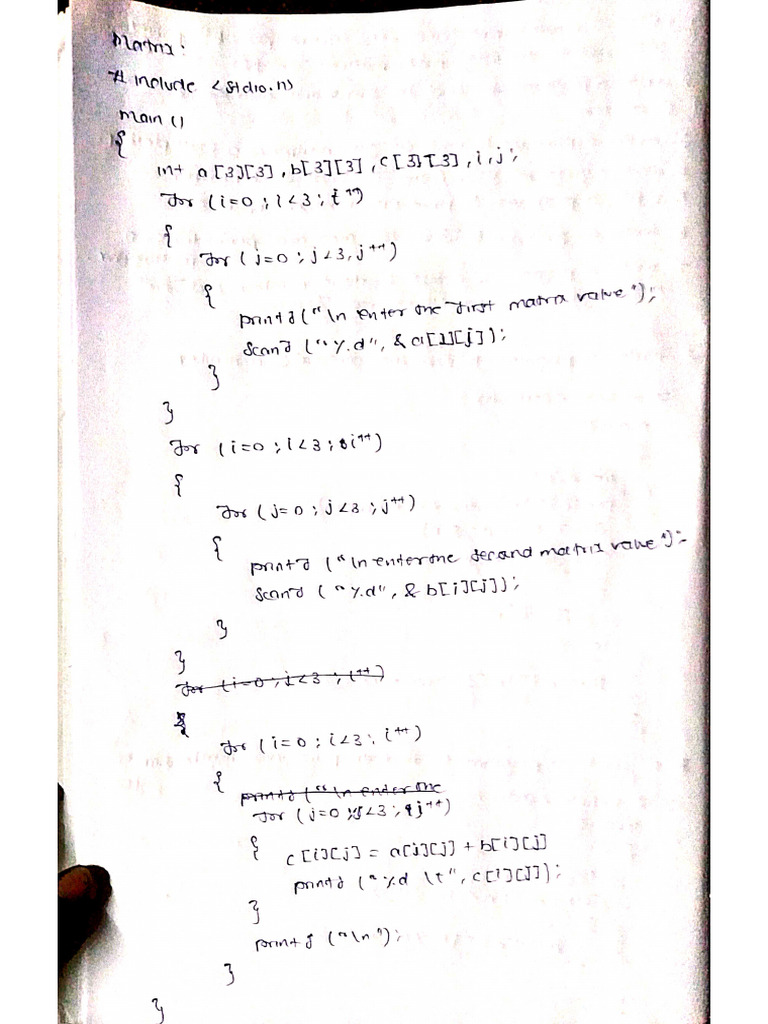 Matrix:
# include <stdio.h>
main ()
{
int a[3][3], b[3][3], c[3][3], i, j;
for (i=0; i<3; i++)
{
for (j=0; j<3, j++)
{
printf("\n enter the first matrix value");
scanf ("%d", &a[i][j]);
}
}
for (i=0; i<3; i++)
{
for (j=0; j<3; j++)
{
printf ("\n enter the second matrix value");
scanf ("%d", &b[i][j]);
}
}
for (i=0; i<3; i++)
{
for (i=0; i<3; i++)
{
printf ("\n enter the
for (j=0; j<3; j++)
{
c[i][j] = a[i][j] + b[i][j]
printf ("%d \t", c[i][j]);
}
printf ("\n");
}
}